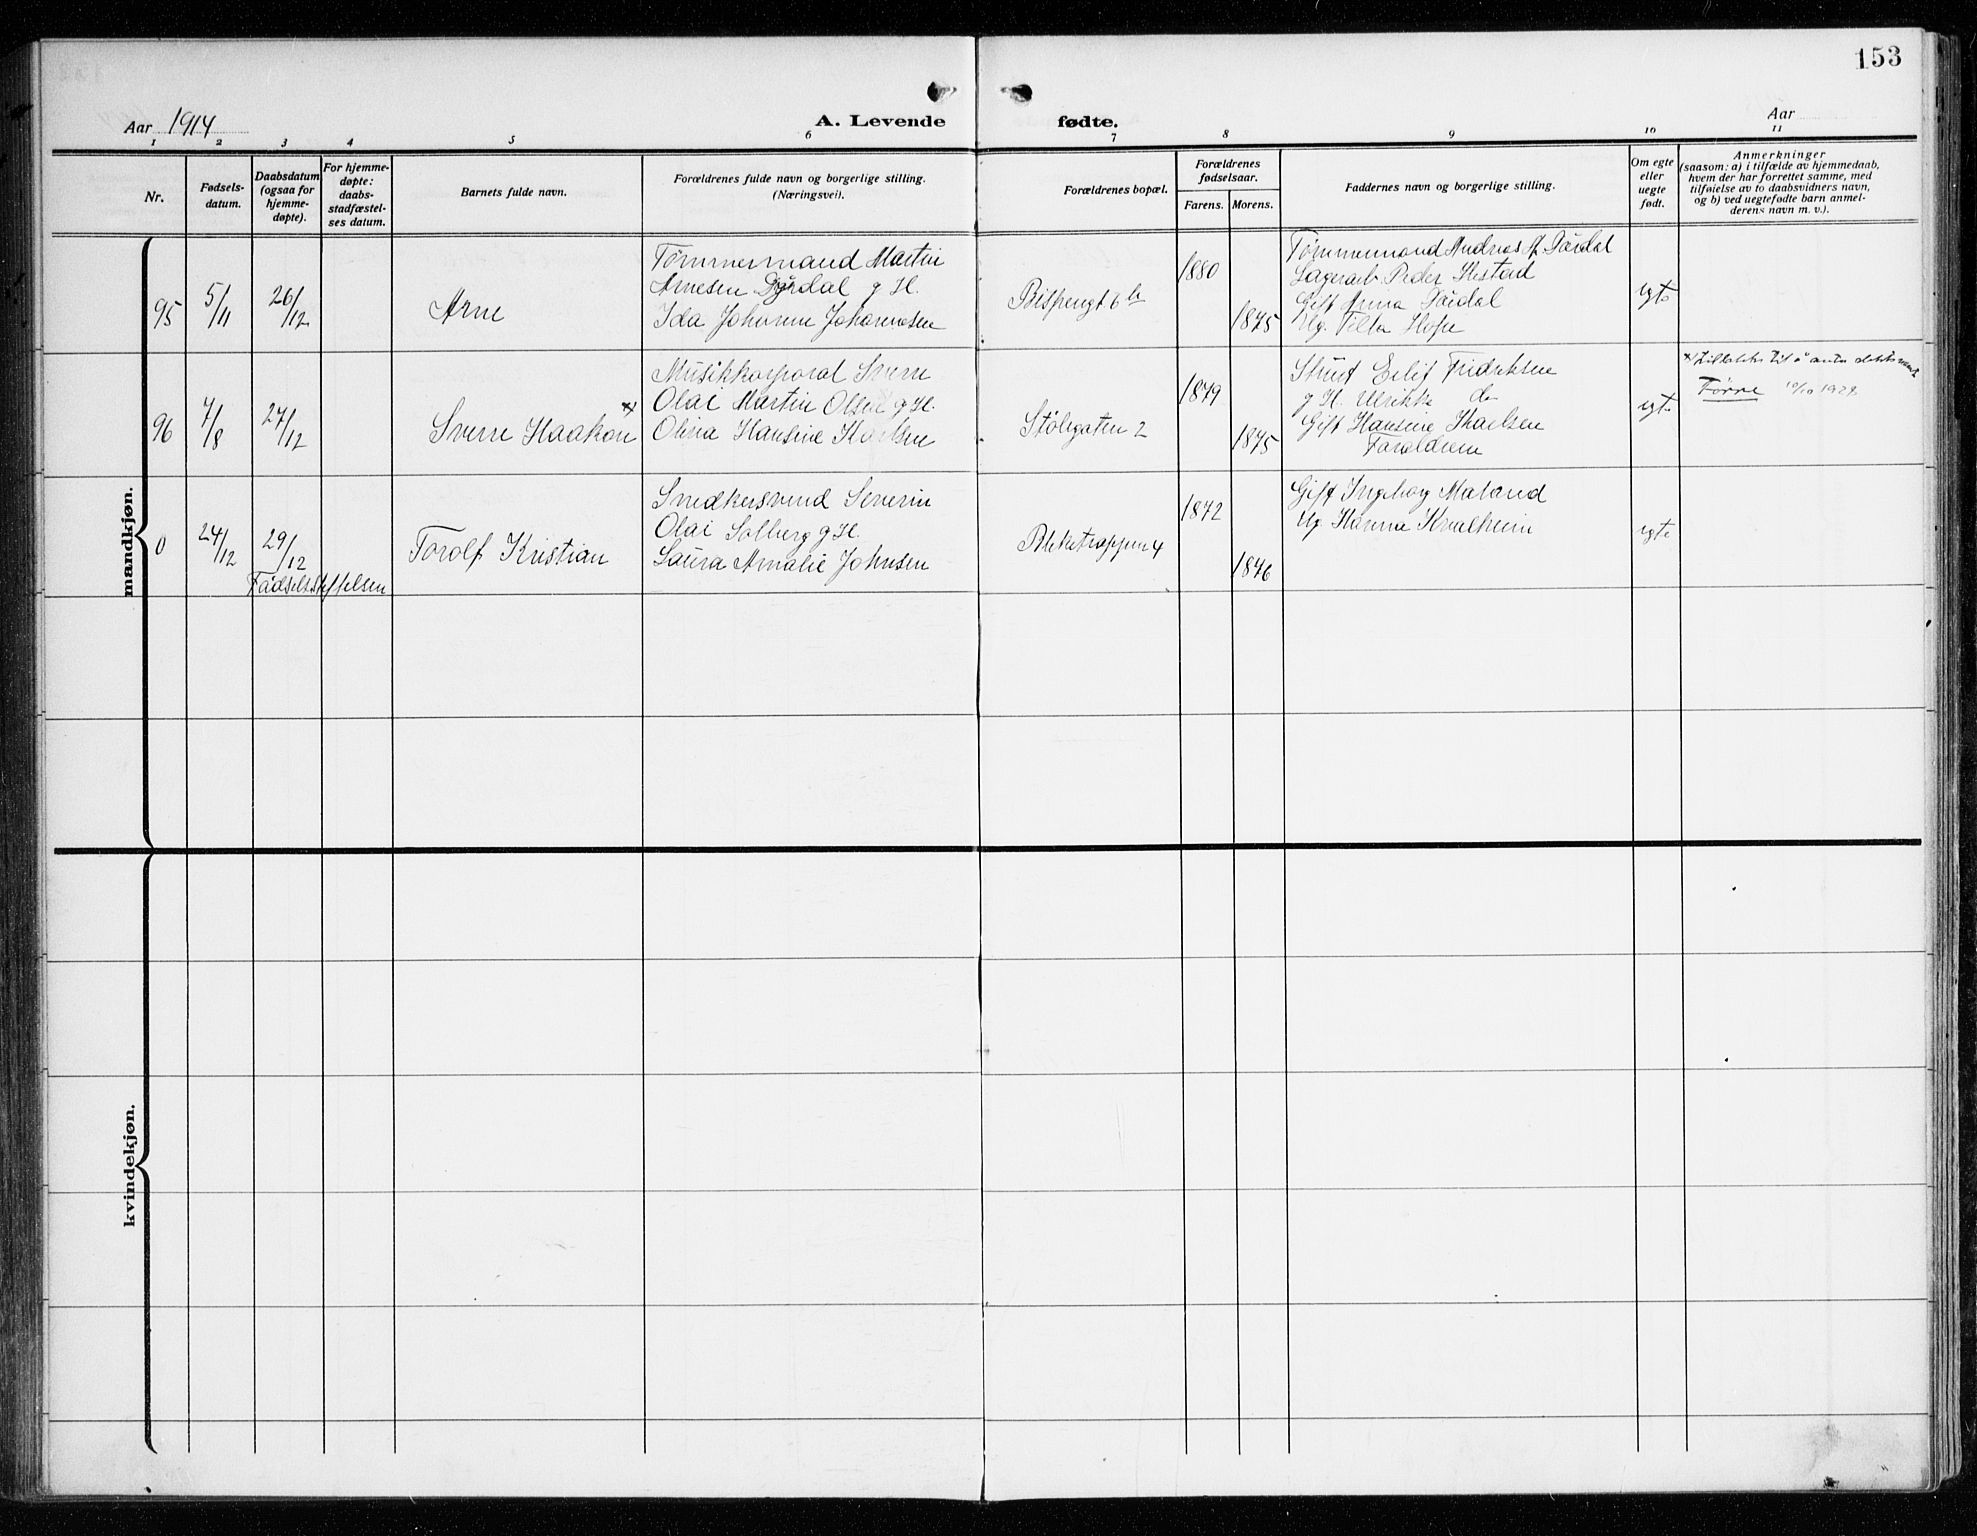 153
Aar 1914
A. Levende fødte.
Aar
1 2 3 4 5 6 7 8 9 10 11
Nr.
Fødsels-
datum.
Daabsdatum
(ogsaa for
hjemme-
døpte).
For hjemme-
døpte:
daabs-
stadfæstel-
ses datum.
Barnets fulde navn.
Forældrenes fulde navn og borgerlige stilling.
(Næringsvei).
Forældrenes bopæl.
Forældrenes
fødselsaar.
Farens. Morens.
Faddernes navn og borgerlige stilling.
Om egte
eller
uegte
født.
Anmerkninger
(saasom: a) i tilfælde av hjemmedaab,
hvem der har forrettet samme, med
tilføielse av to daabsvidners navn,
og b) ved uegtefødte barn anmel-
derens navn m. v.).
mandkjøn.
95 5/11 26/12 Arne
Tømmermand Martin
Arnesen Dyrdal g H.
Ida Johanne Johannesen
Bispengt 6 b
1880
1875
Tømmermand Andreas A
Lagerarb Peder Hestad
Gift Anna
Ug.
egte
96 7/8 27/12 Sverre Haakon x
Musikkorporal Sverre
Olai Martin Olsen g H.
Olina Hansine Karlsen
Stølegaten 2
1879
1875
Eilif Fredriksen
g H. Ulrikke do
Gift Hansine Karlsen
Forældrene
egte
x/ til å anta
Førre 10/10 1928
0 24/12 29/12 Torolf Kristian
Fødselsstiftelsen
Snedkersvend Severin
Olai Solberg g H.
Laura Amalie Johnsen
Blekетrappen 4
1872
1876
Gift Ingeborg Maland
Ug Hanna Kvalheim
egte
kvindekjøn.